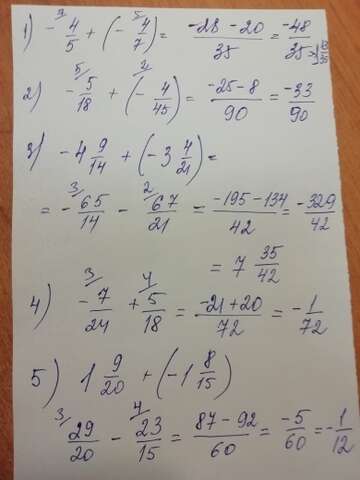 1) - 4/5 + (- 4/7) = (-28 - 20)/35 = -48/35
2) - 5/18 + (- 4/45) = (-25 - 8)/90 = -33/90
3) -4 9/14 + (-3 4/21) =
= - 65/14 - 67/21 = (-195 - 134)/42 = -329/42
= 7 35/42
4) - 7/24 + 5/18 = (-21 + 20)/72 = - 1/72
5) 1 9/20 + (-1 8/15)
29/20 - 23/15 = (87 - 92)/60 = -5/60 = - 1/12